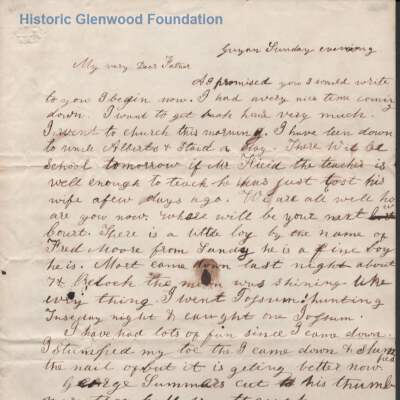 Historic Glenwood Foundation
Guyan Sunday evening
My very Dear Father
As promised you I would write
to you I begin now. I had a very nice time coming
down. I want to get back home very much.
I went to church this morning. I have been down
to uncle Alberts & Staid a day. There will be
School tomorrow if Mr the teacher is
well enough to teach he has just lost his
wife a few days ago. We are all well how
are you now. whare will be your next
Court. There is a little boy by the name of
Fred Moore from Sandy he is a fine boy
he is. Mort came down last night about
7½ Oclock the moon was shining like
every thing I went Possum hunting
night & caught one Possum.
I have had lots of fun since I came down.
I stumped my toe the I came down &
the nail of but it is geting better now.
George Summers cut his thumb